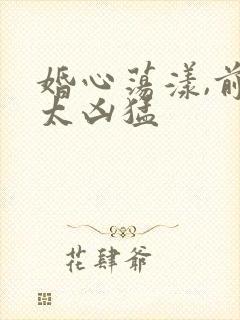 婚心荡漾,前
太凶猛
花肆爷